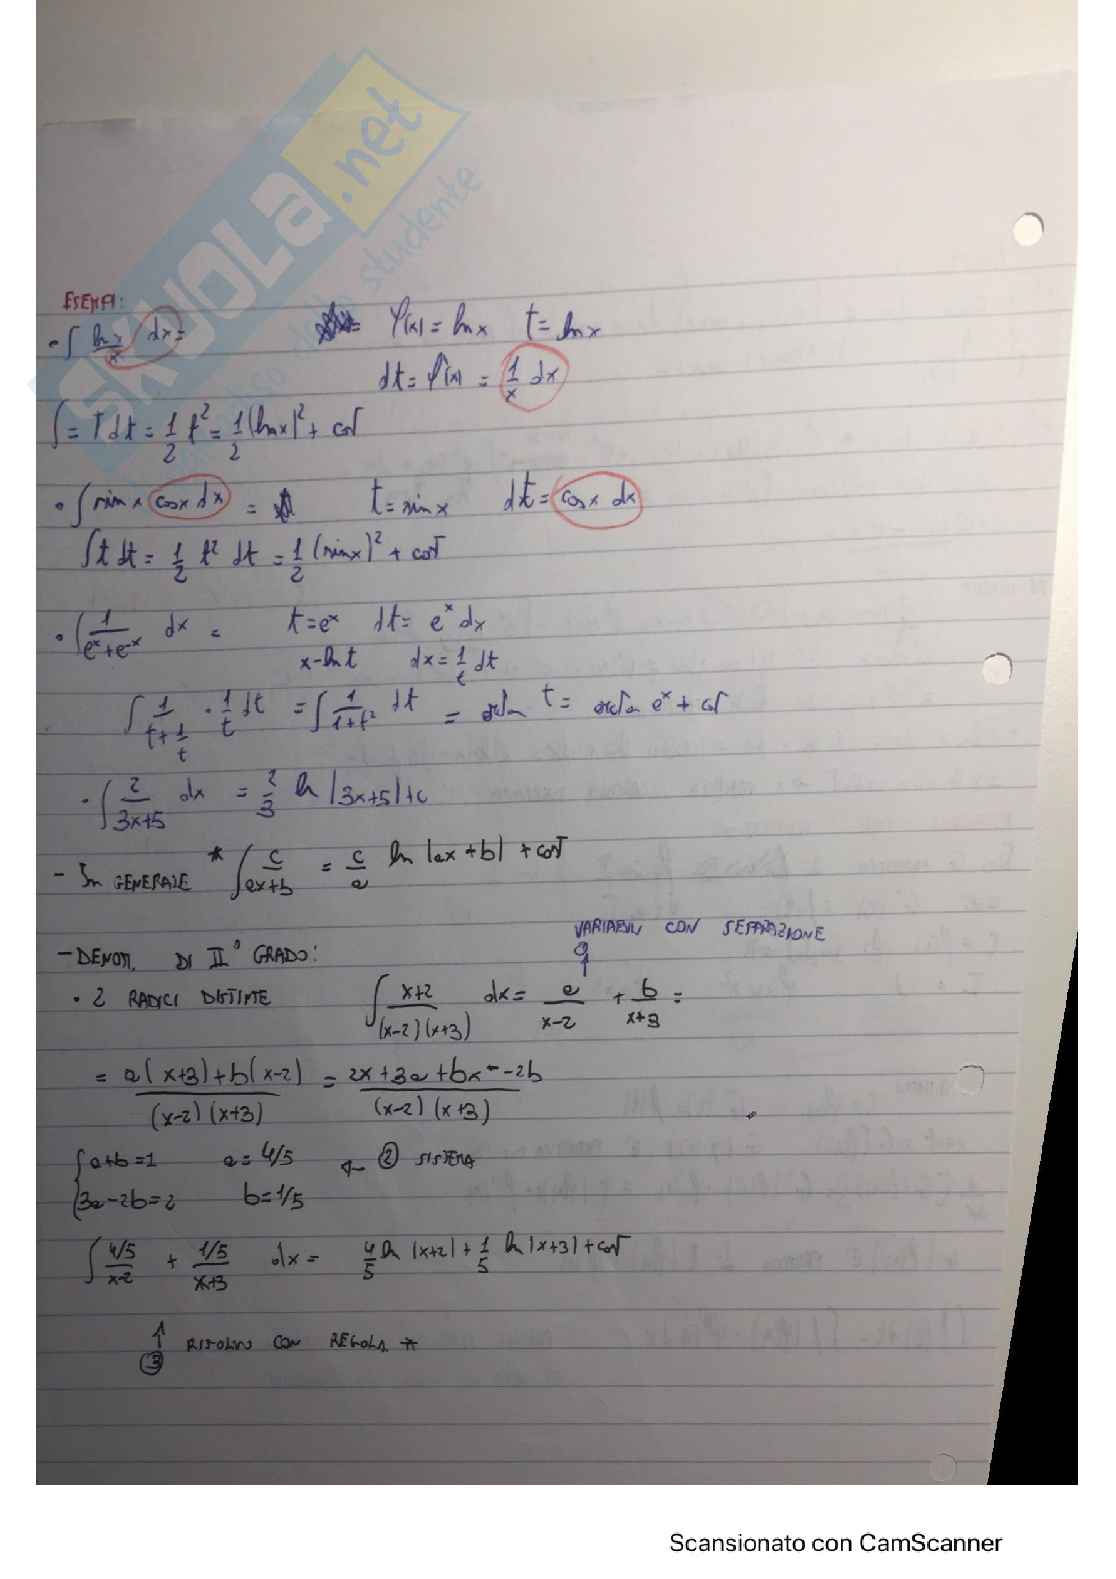 SKUOLA.net
studente
ESEMPI:
• ∫ lnx/x dx = φ(x) = lnx t = lnx
dt = φ'(x) = 1/x dx
∫ = T dt = 1/2 t² = 1/2 (lnx)² + cost
• ∫ sinx cosx dx = t = sinx dt = cosx dx
∫ t dt = 1/2 t² dt = 1/2 (sinx)² + cost
• ∫ 1/(eˣ+e⁻ˣ) dx = t = eˣ dt = eˣ dx
x = ln t dx = 1/t dt
∫ 1/(t+1/t) · 1/t dt = ∫ 1/(1+t²) dt = arctan t = arctan eˣ + cost
• ∫ 2/(3x+5) dx = 2/3 ln |3x+5| + c
- IN GENERALE * ∫ c/(ax+b) = c/a ln |ax+b| + cost
VARIABILI CON SEPARAZIONE
- DENOM. DI II° GRADO:
• 2 RADICI DISTINTE ∫ (x+2)/((x-2)(x+3)) dx = a/(x-2) + b/(x+3) =
= (a(x+3)+b(x-2))/((x-2)(x+3)) = (ax+3a+bx-2b)/((x-2)(x+3))
{ a+b=1 a=4/5 ← ② SISTEMA
3a-2b=2 b=1/5
∫ (4/5)/(x-2) + (1/5)/(x+3) dx = 4/5 ln |x+2| + 1/5 ln |x+3| + cost
↑
③ RISOLVO CON REGOLA *
Scansionato con CamScanner